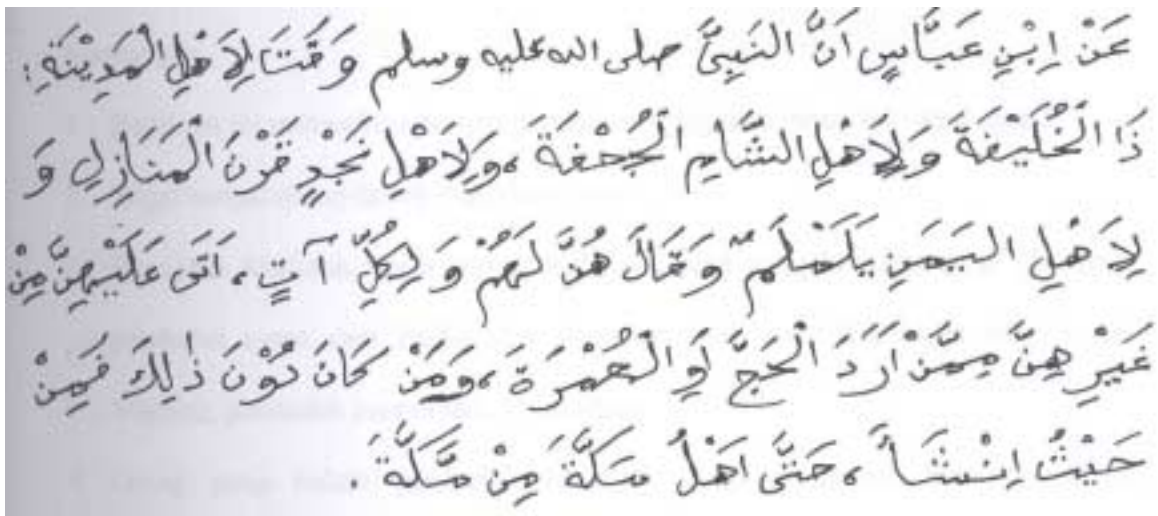 عَنْ اِبْنِ عَبَّاسٍ اَنَّ النَبِيَّ صلى الله عليه وسلم وَقَّتَ لِاَهْلِ الْمَدِيْنَةِ :
ذَا الْحُلَيْفَةَ وَلِاَهْلِ الشَّامِ الْجُحْفَةَ ، وَلِاَهْلِ نَجْدٍ قَرْنَ الْمَنَازِلِ وَ
لِاَهْلِ الْيَمَنِ يَلَمْلَمْ وَقَالَ هُنَّ لَهُمْ وَلِكُلِّ آتٍ ، اَتَى عَلَيْهِنَّ مِنْ
غَيْرِ هِنَّ مِمَّنْ اَرَدَ الْحَجَّ اَوِ الْعُمْرَةَ ، وَمَنْ كَانَ دُوْنَ ذٰلِكَ فَمِنْ
حَيْثُ اِنْشَأَ ، حَتَّى اَهْلُ مَكَّةَ مِنْ مَّكَّةَ